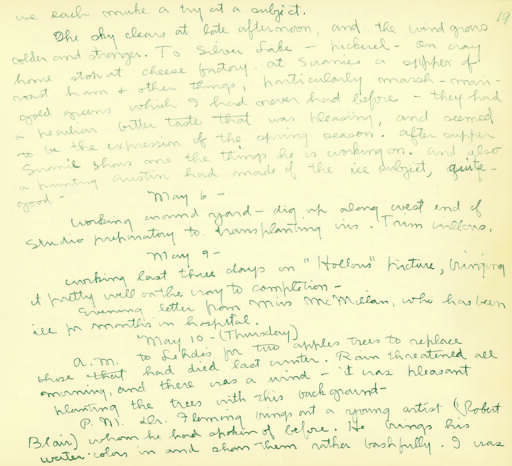 we each make a try at a subject.
19
The sky clears at late afternoon, and the wind grows
colder and stronger. To Silver Lake – pickerel – On way
home stop at cheese factory. at Sunnies a supper of
roast ham & other things, particularly marsh-mari-
gold greens which I had never had before – they had
a peculiar bitter taste that was pleasing, and seemed
to be the expression of the spring season. After supper
shows me the things he is working on. and also
a painting Austin had made of the ice subject, quite
good –
May 6 –
Working around yard – dig up along west end of
Studio preparatory to transplanting iris. Trim willows.
May 9 –
working last three days on "Hollow" picture, bringing
it pretty well on the way to completion –
Evening letter from Miss McMillan, who has been
ill for months in hospital.
May 10 – (Thursday)
A.M. to for two apples trees to replace
those that had died last winter. Rain threatened all
morning, and there was a wind – it was pleasant
planting the trees with this background –
P.M. Dr. Fleming brings out a young artist (Robert
Blair) whom he had spoken of before. He brings his
water-colors in and shows them rather bashfully. I was